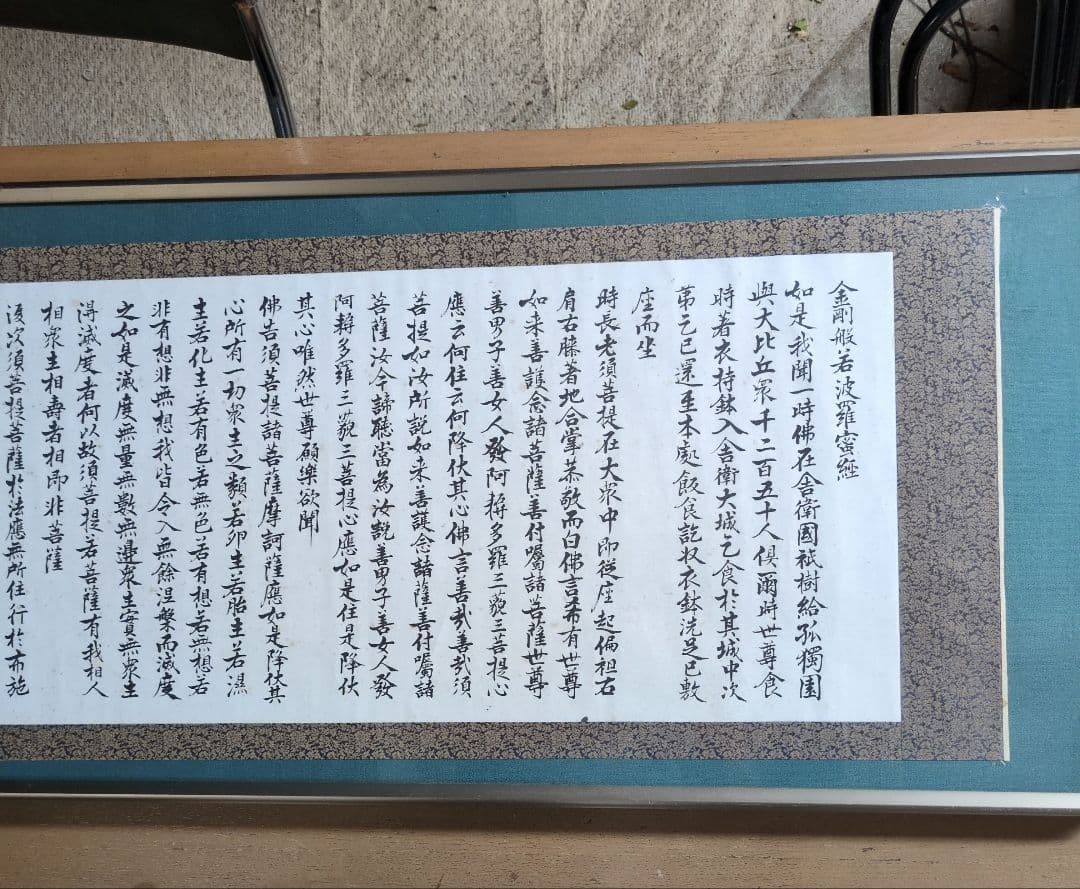 金剛般若波羅蜜經
如是我聞一時佛在舎衛國祇樹給孤獨園
與大比丘眾千二百五十人俱爾時世尊食
時著衣持鉢入舎衛大城乞食於其城中次
第乞已還至本處飯食訖収衣鉢洗足已敷
座而坐
時長老須菩提在大眾中即從座起偏袒右
肩右膝著地合掌恭敬而白佛言希有世尊
如来善護念諸菩薩善付囑諸菩薩世尊
善男子善女人發阿耨多羅三藐三菩提心
應云何住云何降伏其心佛言善哉善哉須
菩提如汝所説如来善護念諸菩薩善付囑諸
菩薩汝今諦聽當為汝説善男子善女人發
阿耨多羅三藐三菩提心應如是住是降伏
其心唯然世尊願樂欲聞
佛告須菩提諸菩薩摩訶薩應如是降伏其
心所有一切眾生之類若卵生若胎生若濕
生若化生若有色若無色若有想若無想若
非有想非無想我皆令入無餘涅槃而滅度
之如是滅度無量無數無邊眾生實無眾生
得滅度者何以故須菩提若菩薩有我相人
相眾生相壽者相即非菩薩
復次須菩提菩薩於法應無所住行於布施